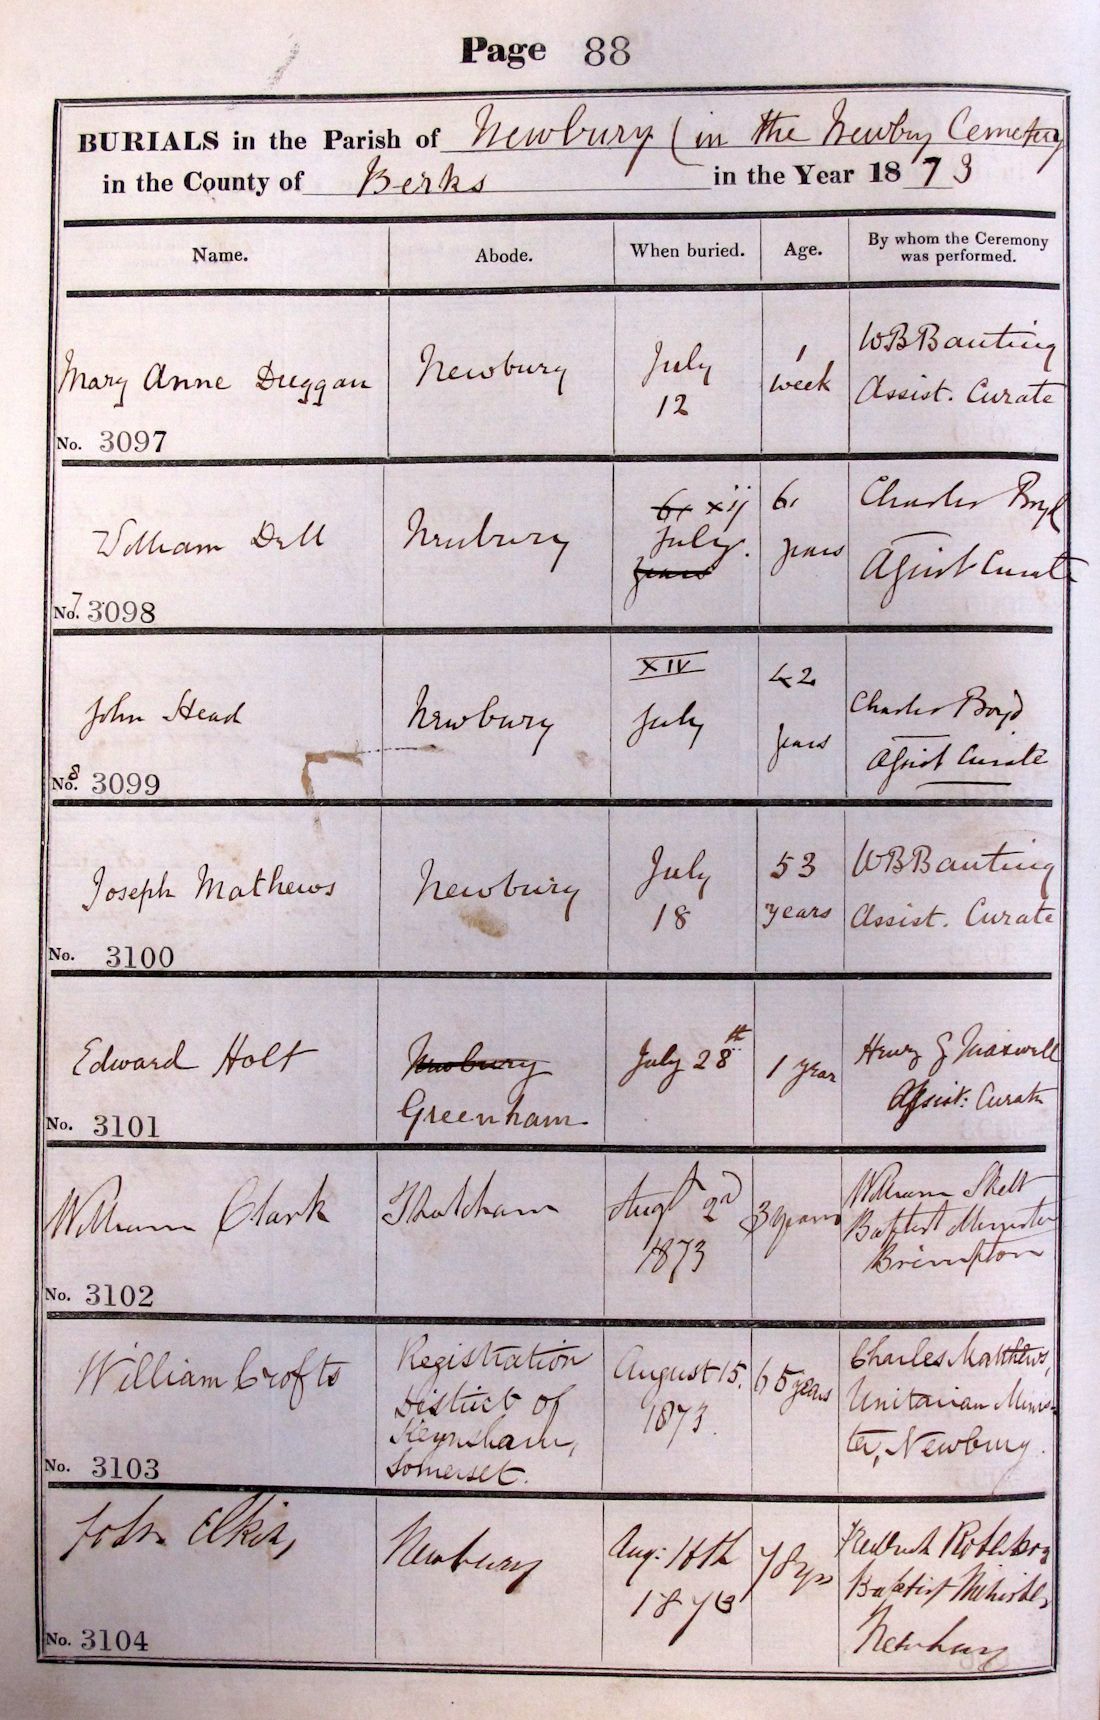 Page 88
BURIALS in the Parish of Newbury (in the Newbry Cemetery
in the County of Berks in the Year 1873
Name. Abode. When buried. Age. By whom the Ceremony was performed.
Mary Anne Duggan
No. 3097
Newbury
July
12
1
week
WBBanting
Assist. Curate
William Dell
7
No. 3098
Newbury
61 xij
July.
years
61
years
Charles Boyd
Assist Curate
John Head
8
No. 3099
Newbury
XIV
July
42
years
Charles Boyd
Assist Curate
Joseph Mathews
No. 3100
Newbury
July
18
53
years
WBBanting
Assist. Curate
Edward Holt
No. 3101
Newbury
Greenham.
July 28th
1 year
Henry G Maxwell
Assist: Curate
William Clark
No. 3102
Thatcham
Augt 2nd
1873
3 years
William Skelt
Baptist Minister
Brimpton
William Crofts
No. 3103
Registration
District of
Keynsham,
Somerset.
August 15.
1873.
65 years
Charles Matthews,
Unitarian Minis-
ter, Newbury.
John Elkins
No. 3104
Newbury
Aug: 16th
1873
78 yrs
Baptist Minister,
Newbury